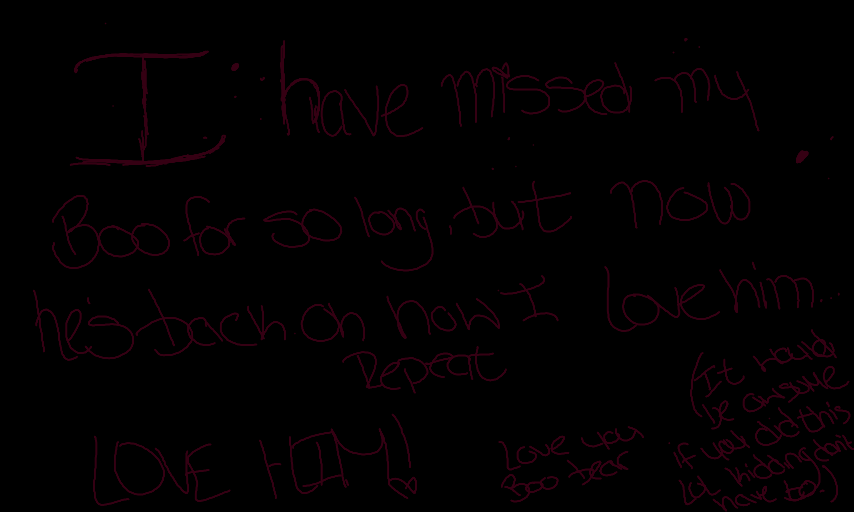 I have missed my
Boo for so long, but now
he's back oh how I love him...
Repeat
LOVE HIM!
Love you
Boo bear
(It would
be
if you did this
lol kidding don't
have to!)